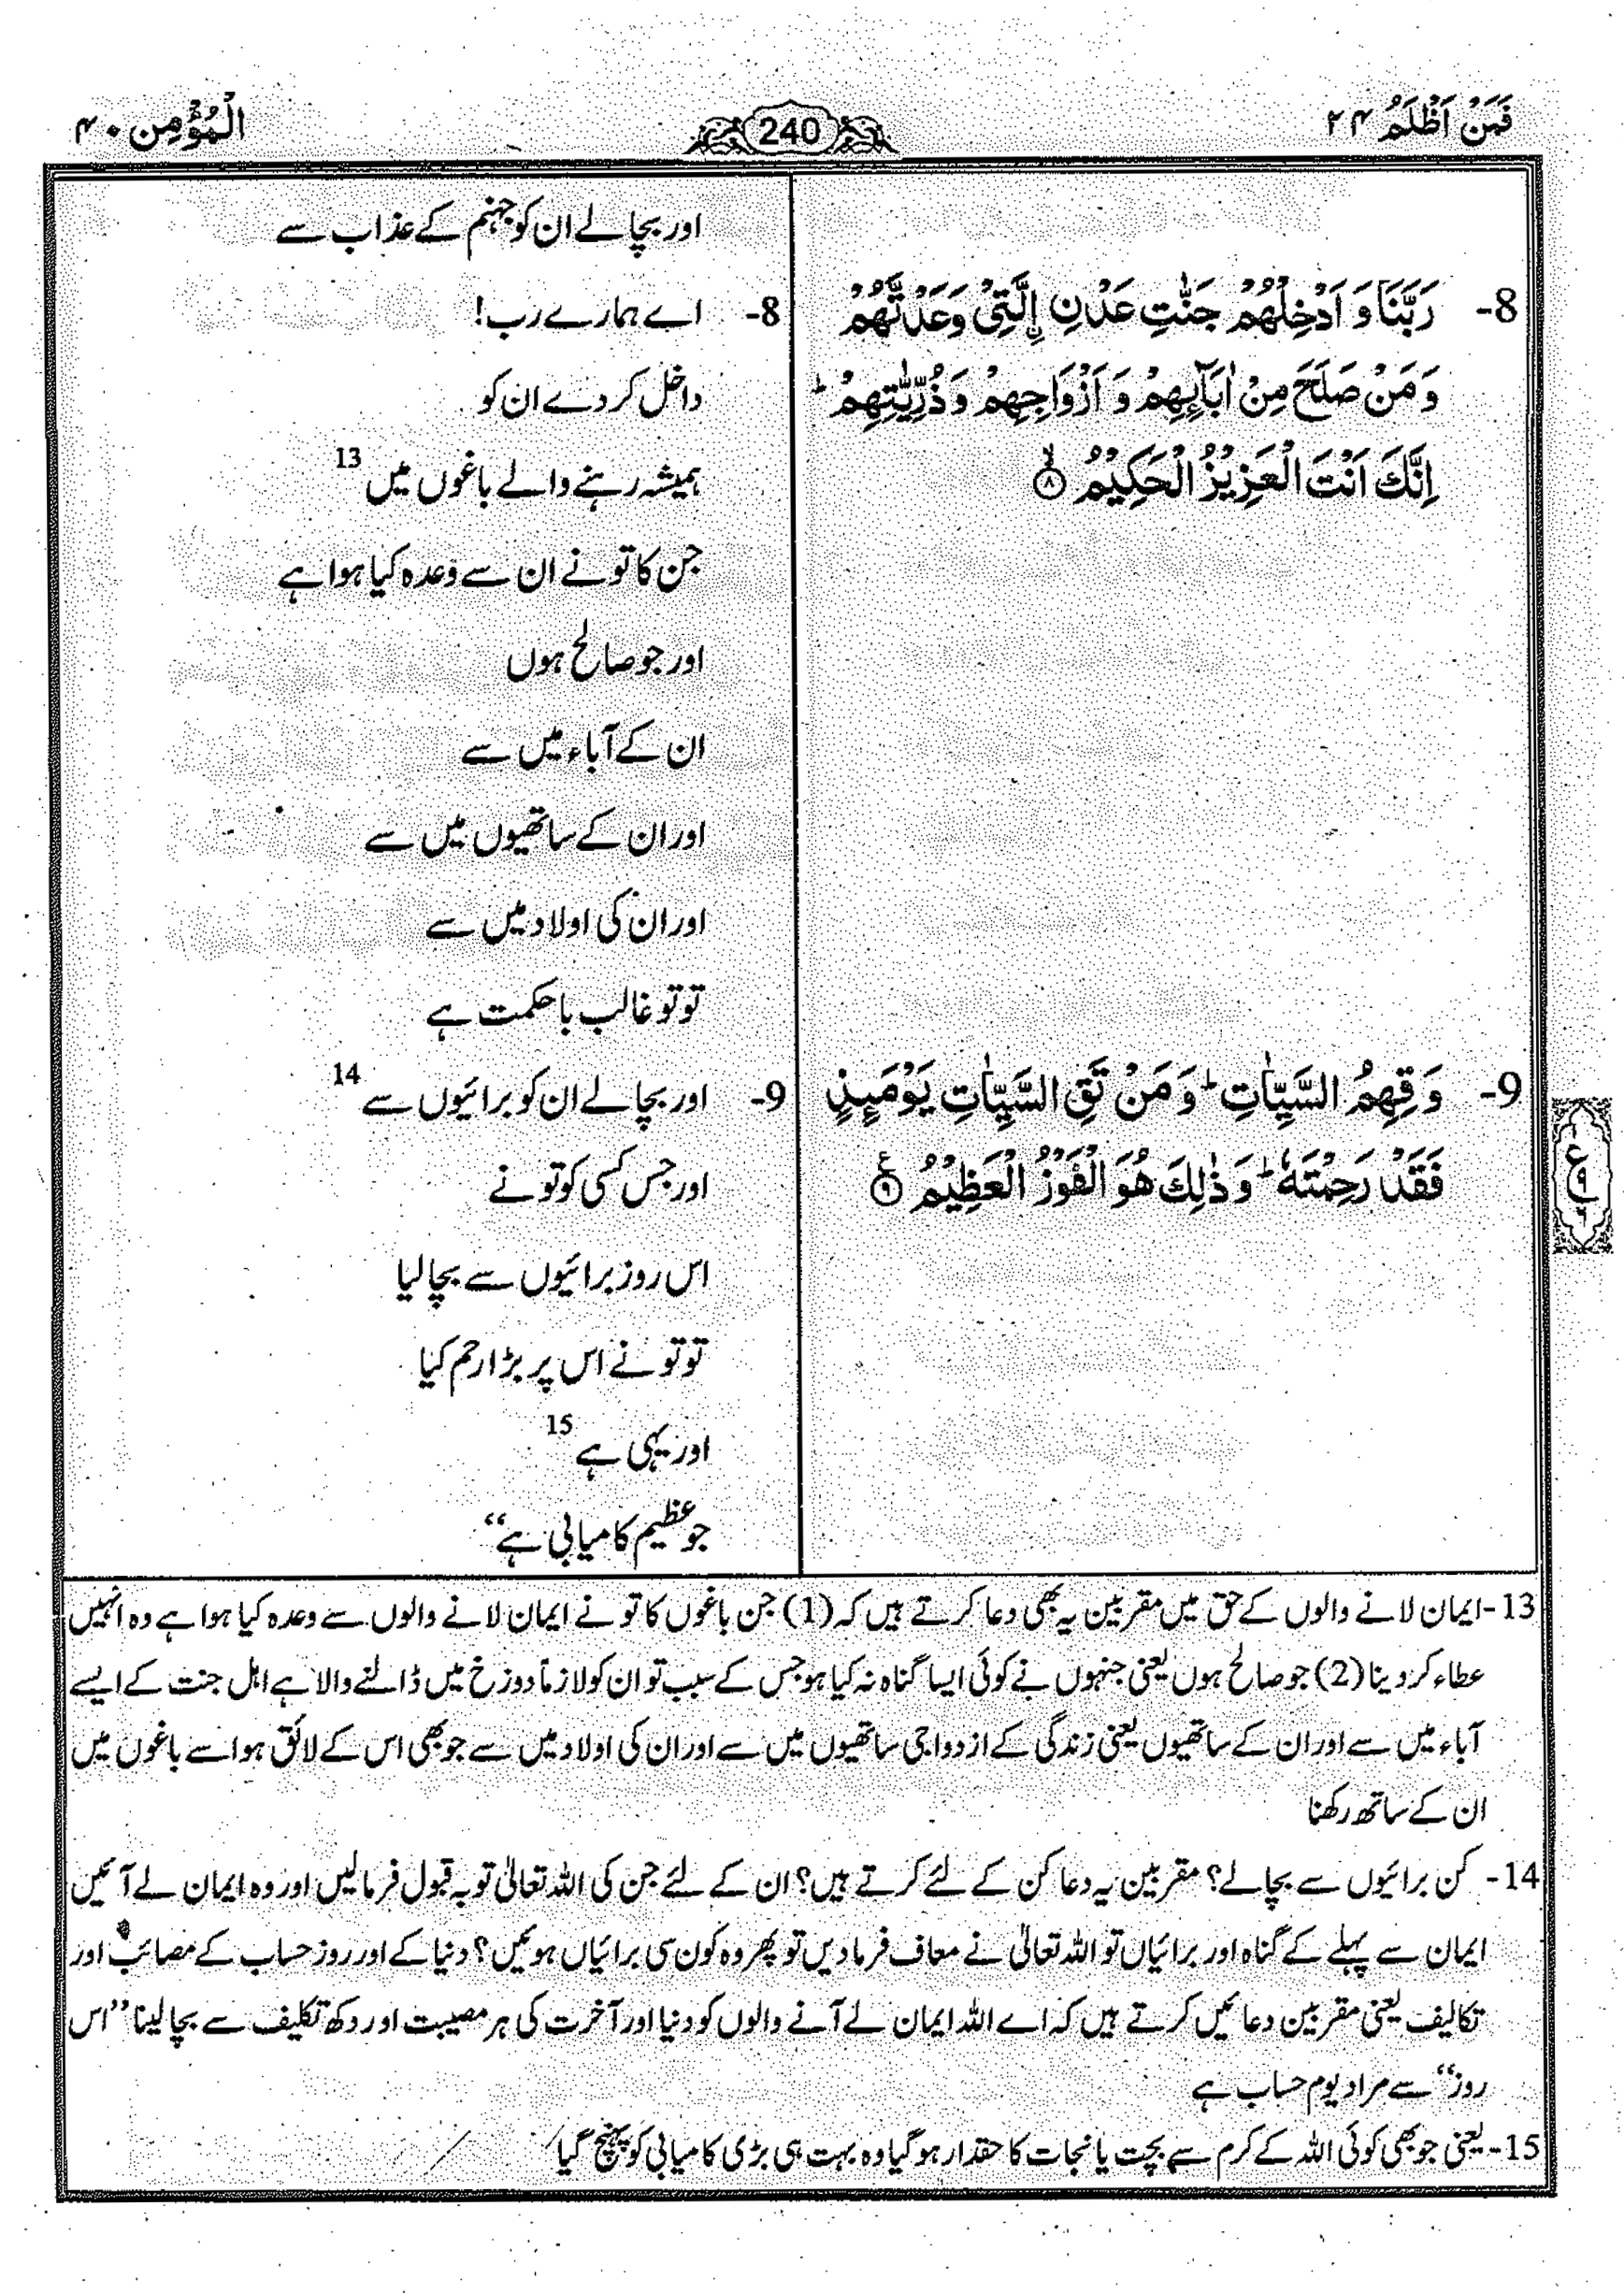 فَمَنْ اَظْلَمُ ۲۴
240
الْمُؤْمِن ۴۰
8- رَبَّنَا وَ اَدْخِلْهُمْ جَنّٰتِ عَدْنِ اِ۟لَّتِیْ وَعَدْتَّهُمْ
وَ مَنْ صَلَحَ مِنْ اٰبَآئِهِمْ وَ اَزْوَاجِهِمْ وَ ذُرِّیّٰتِهِمْ ؕ
اِنَّكَ اَنْتَ الْعَزِیْزُ الْحَكِیْمُ ۙ۸
9- وَ قِهِمُ السَّیِّاٰتِ ؕ وَ مَنْ تَقِ السَّیِّاٰتِ یَوْمَىِٕذٍ
فَقَدْ رَحِمْتَهٗ ؕ وَ ذٰلِكَ هُوَ الْفَوْزُ الْعَظِیْمُ ۹ ع
اور بچا لے ان کو جہنم کے عذاب سے
8- اے ہمارے رب!
داخل کر دے ان کو
ہمیشہ رہنے والے باغوں میں 13
جن کا تو نے ان سے وعدہ کیا ہوا ہے
اور جو صالح ہوں
ان کے آباء میں سے
اور ان کے ساتھیوں میں سے
اور ان کی اولاد میں سے
تو تو غالب باحکمت ہے
9- اور بچا لے ان کو برائیوں سے 14
اور جس کسی کو تو نے
اس روز برائیوں سے بچا لیا
تو تو نے اس پر بڑا رحم کیا
اور یہی ہے 15
جو عظیم کامیابی ہے‘‘
ع ۹
13- ایمان لانے والوں کے حق میں مقربین یہ بھی دعا کرتے ہیں کہ (1) جن باغوں کا تو نے ایمان لانے والوں سے وعدہ کیا ہوا ہے وہ انہیں
عطاء کر دینا (2) جو صالح ہوں یعنی جنہوں نے کوئی ایسا گناہ نہ کیا ہو جس کے سبب تو ان کو لازماً دوزخ میں ڈالنے والا ہے اہل جنت کے ایسے
آباء میں سے اور ان کے ساتھیوں یعنی زندگی کے ازدواجی ساتھیوں میں سے اور ان کی اولاد میں سے جو بھی اس کے لائق ہو اسے باغوں میں
ان کے ساتھ رکھنا
14- کن برائیوں سے بچا لے؟ مقربین یہ دعا کن کے لئے کرتے ہیں؟ ان کے لئے جن کی اللہ تعالیٰ توبہ قبول فرما لیں اور وہ ایمان لے آئیں
ایمان سے پہلے کے گناہ اور برائیاں تو اللہ تعالیٰ نے معاف فرما دیں تو پھر وہ کون سی برائیاں ہوئیں؟ دنیا کے اور روز حساب کے مصائب اور
تکالیف یعنی مقربین دعائیں کرتے ہیں کہ اے اللہ ایمان لے آنے والوں کو دنیا اور آخرت کی ہر مصیبت اور دکھ تکلیف سے بچا لینا ’’اس
روز‘‘ سے مراد یوم حساب ہے
15- یعنی جو بھی کوئی اللہ کے کرم سے بچت یا نجات کا حقدار ہو گیا وہ بہت ہی بڑی کامیابی کو پہنچ گیا